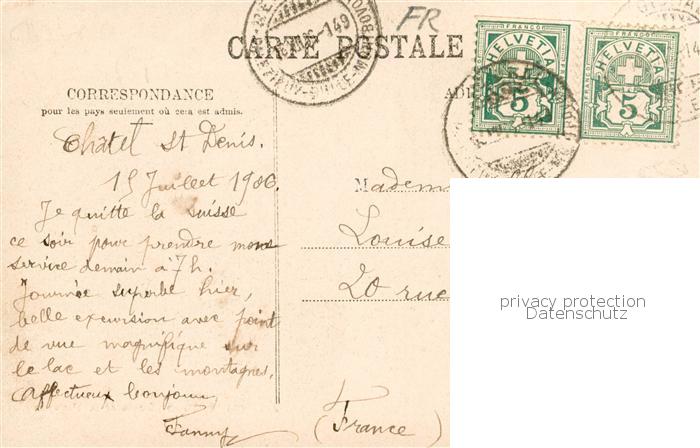 FR
CARTE POSTALE
FRANCO
HELVETIA
5
FRANCO
HELVETIA
5
CORRESPONDANCE
pour les pays seulement où cela est admis.
Châtel St Denis.
15 Juillet 1906.
Je quitte la Suisse
ce soir pour prendre mon
service demain à 7h.
Journée superbe hier,
belle excursion avec point
de vue magnifique sur
le lac et les montagnes.
Affectueux bonjour
Fanny
Madem
Louise
20 rue
(France)
privacy protection
Datenschutz